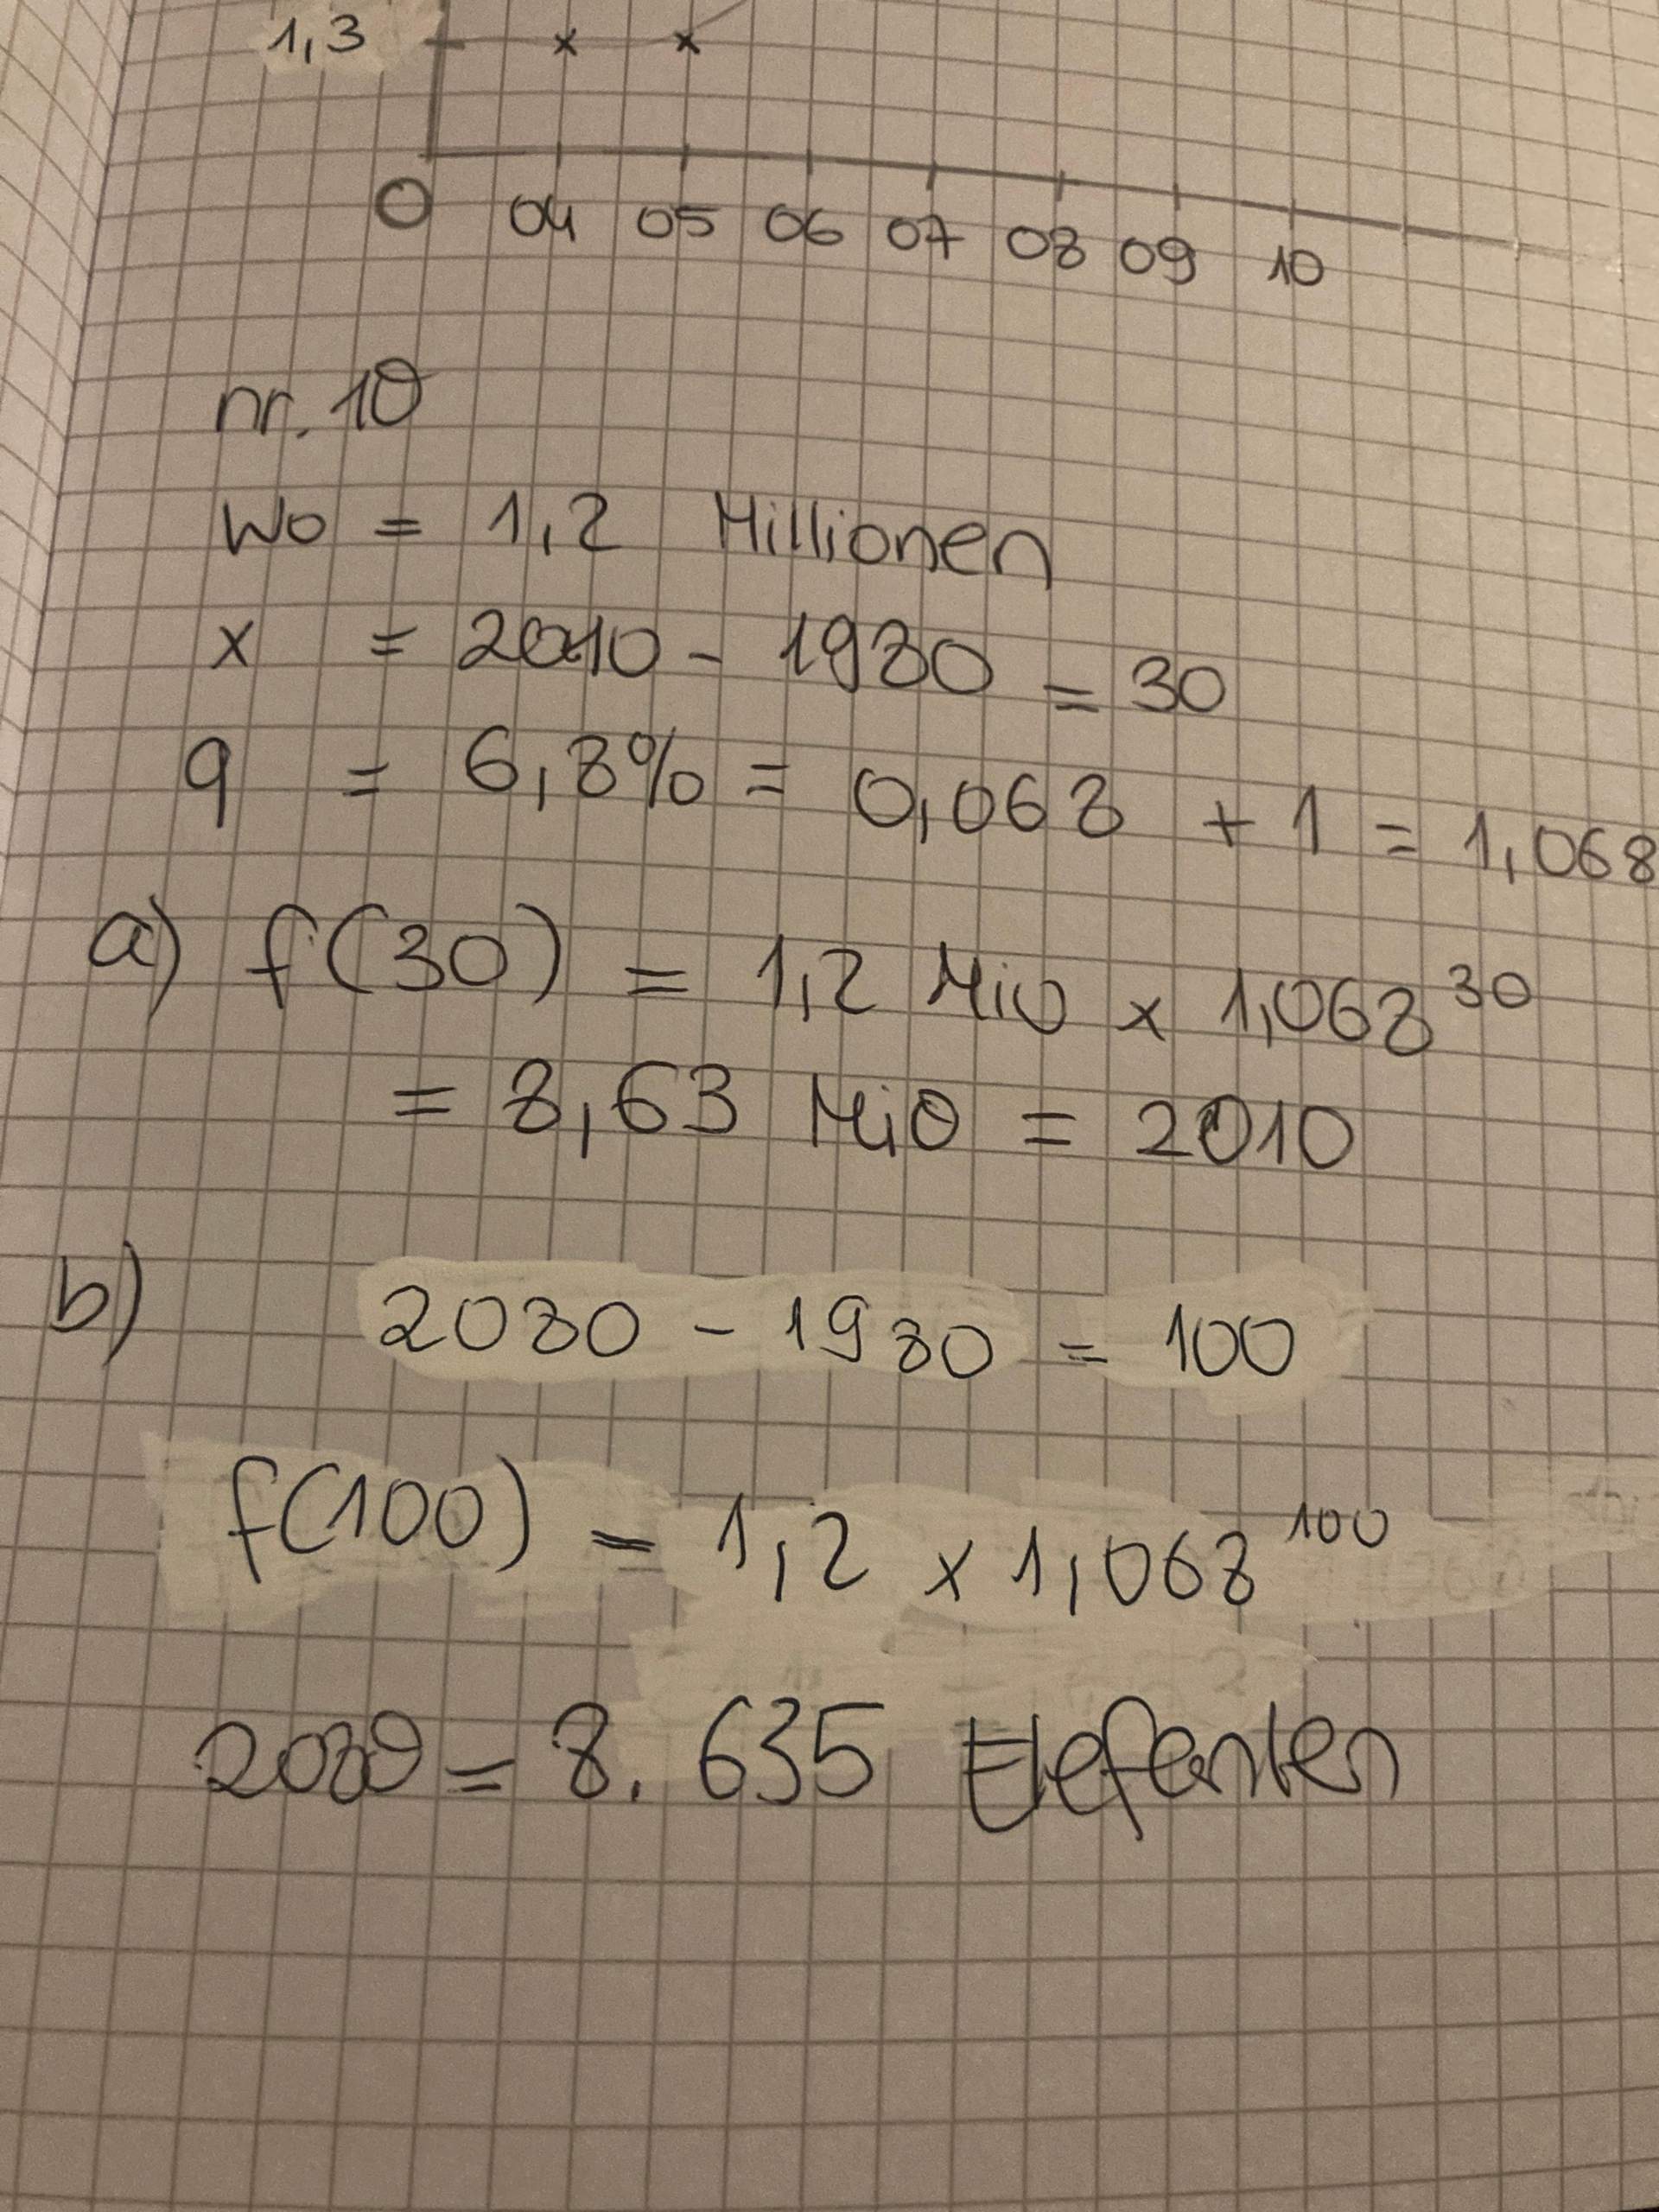 1,3
0 04 05 06 07 08 09 10
nr. 10
Wo = 1,2 Millionen
x = 2010 - 1980 = 30
q = 6,8% = 0,068 + 1 = 1,068
a) f(30) = 1,2 Mio x 1,068³⁰
= 8,63 Mio = 2010
b) 2080 - 1980 = 100
f(100) = 1,2 x 1,068¹⁰⁰
2080 = 8.635 Elefanten